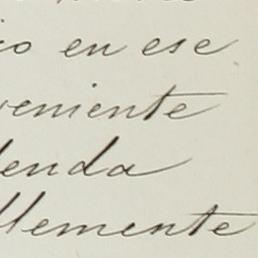 io en ese
veniente
enda
llemente